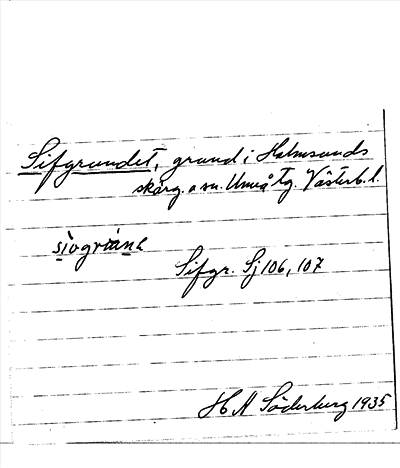 Sifgrundet, grund i Holmsunds
skärg. o sn. Umeå tg. Västerb. l.
Sifgr. Sj 106, 107
H N Söderberg 1935